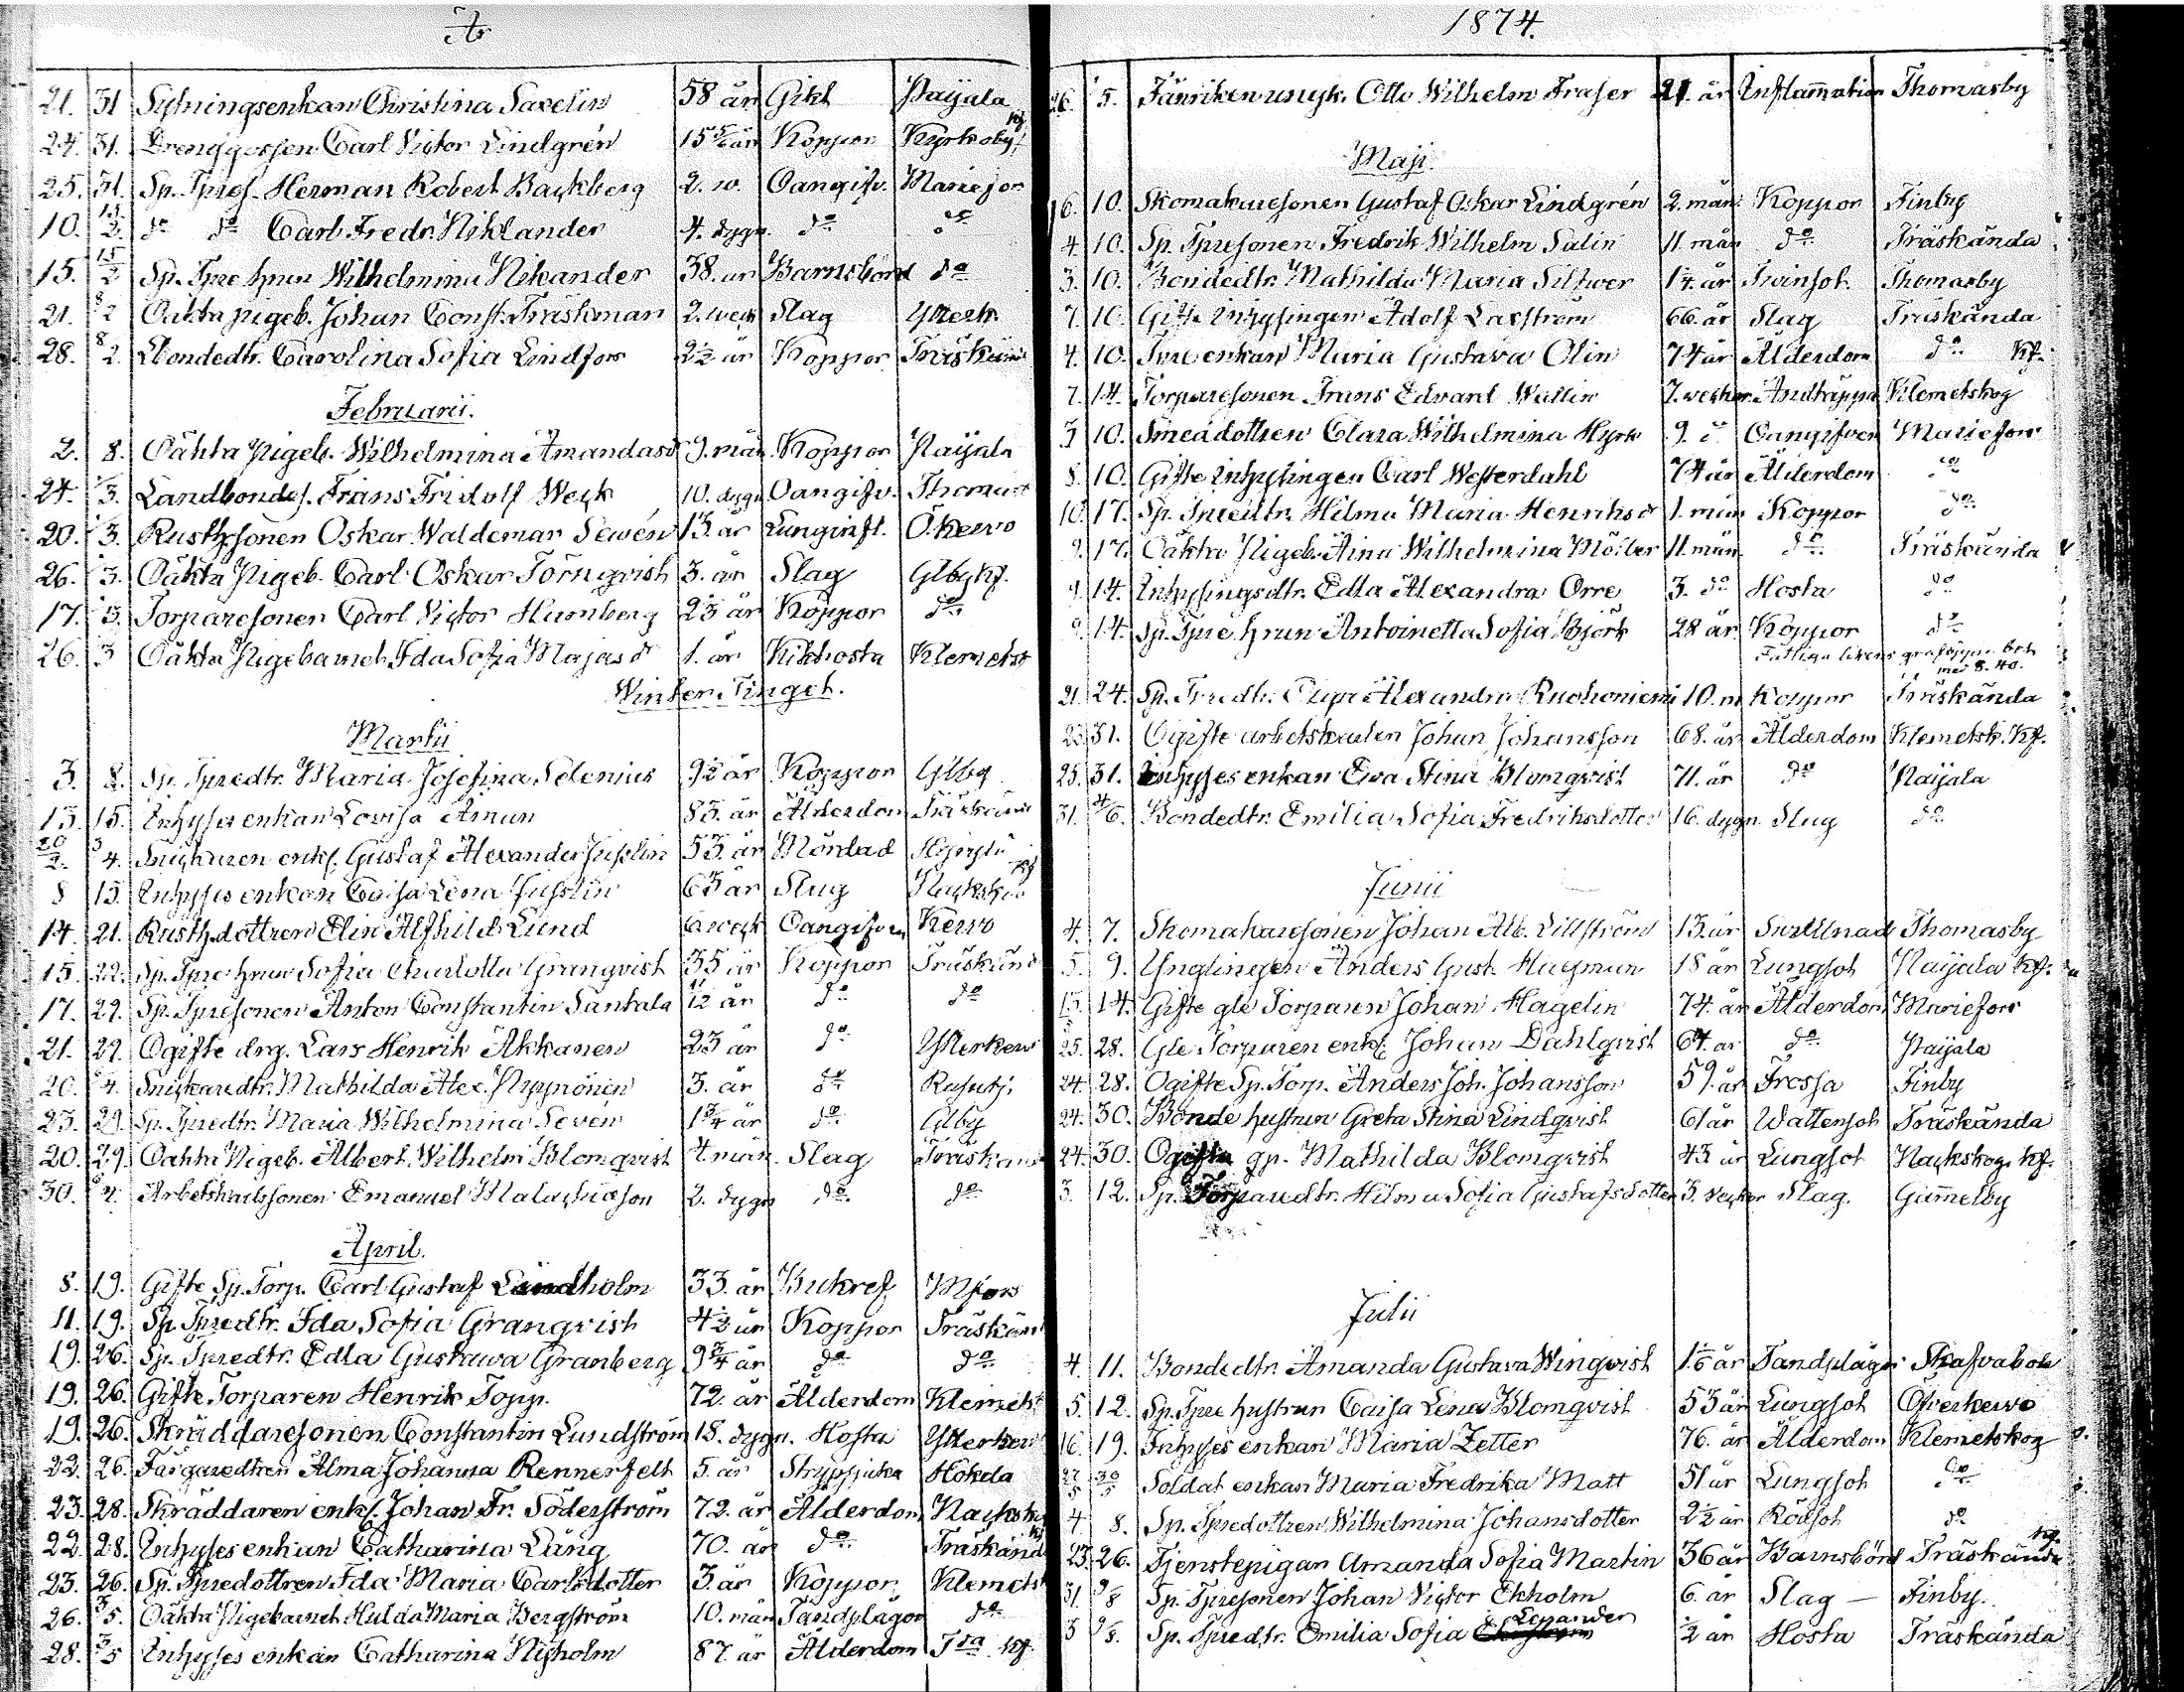 År
21. 31 Sytningsenkan Christina Saxelin 58 år Gikt Paijala
24. 31. Drenggossen Carl Victor Lindgrén 15 5/6 år Koppor Kyrkoby
25. 31. Sp. Tpres. Herman Robert Backberg 2. w. Oangifv. Mariefors
10. 15/2. do do Carl Fredr. Niklander 4. dygn. do do
15. 15/2 Sp. Tpre hrun Wilhelmina Nikander 38. år Barnsbörd do
21. 8/2 Oäkta pigeb. Johan Const. Träskman 2. weck Slag Ytterk.
28. 8/2. Bondedtr. Carolina Sofia Lindfors 2 1/2 år Koppor Träskända
Februarii.
2. 8. Oäkta Pigeb. Wilhelmina Amandasdr 9. mån. Koppor Paijala
24. 3. Landbondes. Frans Fridolf Weck 10. dygn Oangifv. Thomasb
20. 3. Rusth.sonen Oskar Waldemar Sewén 13. år Lunginfl. Ö.Kervo
26. 3. Oäkta Pigeb. Carl Oskar Törnqvist 3. år Slag Glby kf.
17. 3. Torparesonen Carl Victor Humberg 23 år Koppor do
26. 3 Oäkta Pigebarnet Ida Sofia Majasdr 1. år Kikhosta Klemetsk
Winter Tinget.
Martii
3. 8. Sp. Tpredtr. Maria Josefina Selenius 9 1/2 år Koppor Glby
13. 15. Inhyses enkan Lovisa Åman 83. år Ålderdom Träskända
20/2. 4. Snickaren enkl. Gustaf Alexander Jusslin 53. år Mördad Hyrylä
8 15. Inhyses enkan Caisa Lena Jusslin 63 år Slag Nackskog kf
14. 21. Rusth.dottren Elin Alfhild Lund 6 weck Oangifven Kervo
15. 22. Sp. Tpre hrun Sofia Charlotta Granqvist 35 år Koppor Träskända
17. 29. Sp. Tpresonen Anton Constantin Santala 11/12 år do do
21. 29. Ogifte drg. Lars Henrik Akkanen 23 år do Ytterkerv
20. 4. Snickaredtr. Mathilda Alex. Nyppönen 3. år do Rusutj.
23. 29. Sp. Tpredtr. Maria Wilhelmina Sevén 1 3/4 år do Glby
20. 29. Oäkta Pigeb. Albert Wilhelm Blomqvist 4 mån. Slag Träskända
30. 4. Arbetskarlssonen Emanuel Malachiasson 2. dygn do do
April.
8. 19. Gifte Sp. Torp. Carl Gustaf Lindholm 33. år Bukref Mfors
11. 19. Sp. Tpredtr. Ida Sofia Granqvist 4 1/2 år Koppor Träskända
19. 26. Sp. Tpredtr. Edla Gustawa Granberg 9 3/4 år do do
19. 26. Gifte Torparen Henrik Topp. 72. år Ålderdom Klemetsk
19. 26. Skräddaresonen Constantin Lundström 18. dygn. Hosta Ytterkerv
22. 26. Färgaredtren Alma Johanna Rennerfelt 5. år Strypsjuka Hökela
23. 28. Skräddaren enkl. Johan Fr. Söderström 72. år Ålderdom Nackskog
22. 28. Inhyses enkan Catharina Läng 70. år do Träskända kf
23. 26. Sp. Tpredottren Ida Maria Carlsdotter 3. år Koppor Klemetsk
26. 3/5. Oäkta Pigebarnet Hulda Maria Bergström 10. mån Tandplågor do
28. 3/5 Inhyses enkan Catharina Nyholm 87. år Ålderdom Tda kf.
1874.
26. 5. Fänriken Otto Wilhelm Fraser 21. år Inflammation Thomasby
Maji
6. 10. Skomakaresonen Gustaf Oskar Lindgrén 2. mån. Koppor Finby
4. 10. Sp. Tpresonen Fredrik Wilhelm Salin 11. mån do Träskända
3. 10. Bondedtr. Mathilda Maria Silfwer 14. år Tvinsot. Thomasby
7. 10. Gifte Inhysingen Adolf Laxström 66. år Slag Träskända
4. 10. Tpre enkan Maria Gustava Olin 74 år Ålderdom do kf.
7. 14. Torparesonen Frans Edvard Wallin 7. weckor Andtäppa Klemetskog
3 10. Smeddottren Clara Wilhelmina Hyrk 9. do Oangifven Mariefors
8. 10. Gifte Inhysingen Carl Westerdahl 74 år Ålderdom do
10. 17. Sp. Smedtr. Hilma Maria Henriksdr 1. mån Koppor do
9. 17. Oäkta Pigeb. Aina Wilhelmina Möller 11. mån do Träskända
9. 14. Inhysingsdtr. Edla Alexandra Orre 3. do Hosta do
9. 14. Sp. Tpre hrun Antoinetta Sofia Björk 28 år Koppor do
Fattiga likens graföppn. bet. med 8. 40.
21. 24. Sp. Tpredtr. Olga Alexandra Ruohoniemi 10. m Koppor Träskända
23. 31. Ogifte arbetskarlen Johan Johansson 68. år Ålderdom Klemetsk. Kf.
25. 31. Inhyses enkan Ewa Stina Blomqvist 71. år do Paijala
31. 4/6. Bondedtr. Emilia Sofia Fredriksdotter 16. dygn. Slag do
Junii
4. 7. Skomakaresonen Johan Alb. Lillström 13. år Swullnad Thomasby
5. 9. Ynglingen Anders Gust. Hagman 18 år Lungsot Paijala kf.
13. 14. Gifte gle Torparen Johan Hagelin 74. år Ålderdom Mariefors
25. 28. Gle Torparen enkl. Johan Dahlqvist 64. år do Paijala
24. 28. Ogifte Sp. Torp. Anders Joh. Johansson 59. år Frossa Finby
24. 30. Bonde hustrun Greta Stina Lindqvist 61 år Wattensot Träskända
24. 30. Ogifta qp. Mathilda Blomqvist 43 år Lungsot Nackskog kf.
3. 12. Sp. Torparedtr. Hilma Sofia Gustafsdotter 3. veckor Slag. Gammelby
Julii
4. 11. Bondedtr. Amanda Gustava Winqvist 1 1/6 år Tandplågor Skafvabole
5. 12. Sp. Tpre hustrun Caisa Lena Blomqvist 53 år Lungsot Öfverkervo
16. 19. Inhyses enkan Maria Zetter 76. år Ålderdom Klemetskog
27/5 30/5 Soldat enkan Maria Fredrika Matt 51 år Lungsot do
4. 8. Sp. Tpredottren Wilhelmina Johansdotter 2 1/2 år Rödsot do
23. 26. Tjenstepigan Amanda Sofia Martin 36 år Barnsbörd Träskända kf
31. 9/8 Sp. Tpresonen Johan Victor Ekholm 6. år Slag — Finby.
3 9/8. Sp. Tpredtr. Emilia Sofia Lexander 1/2 år Hosta Träskända